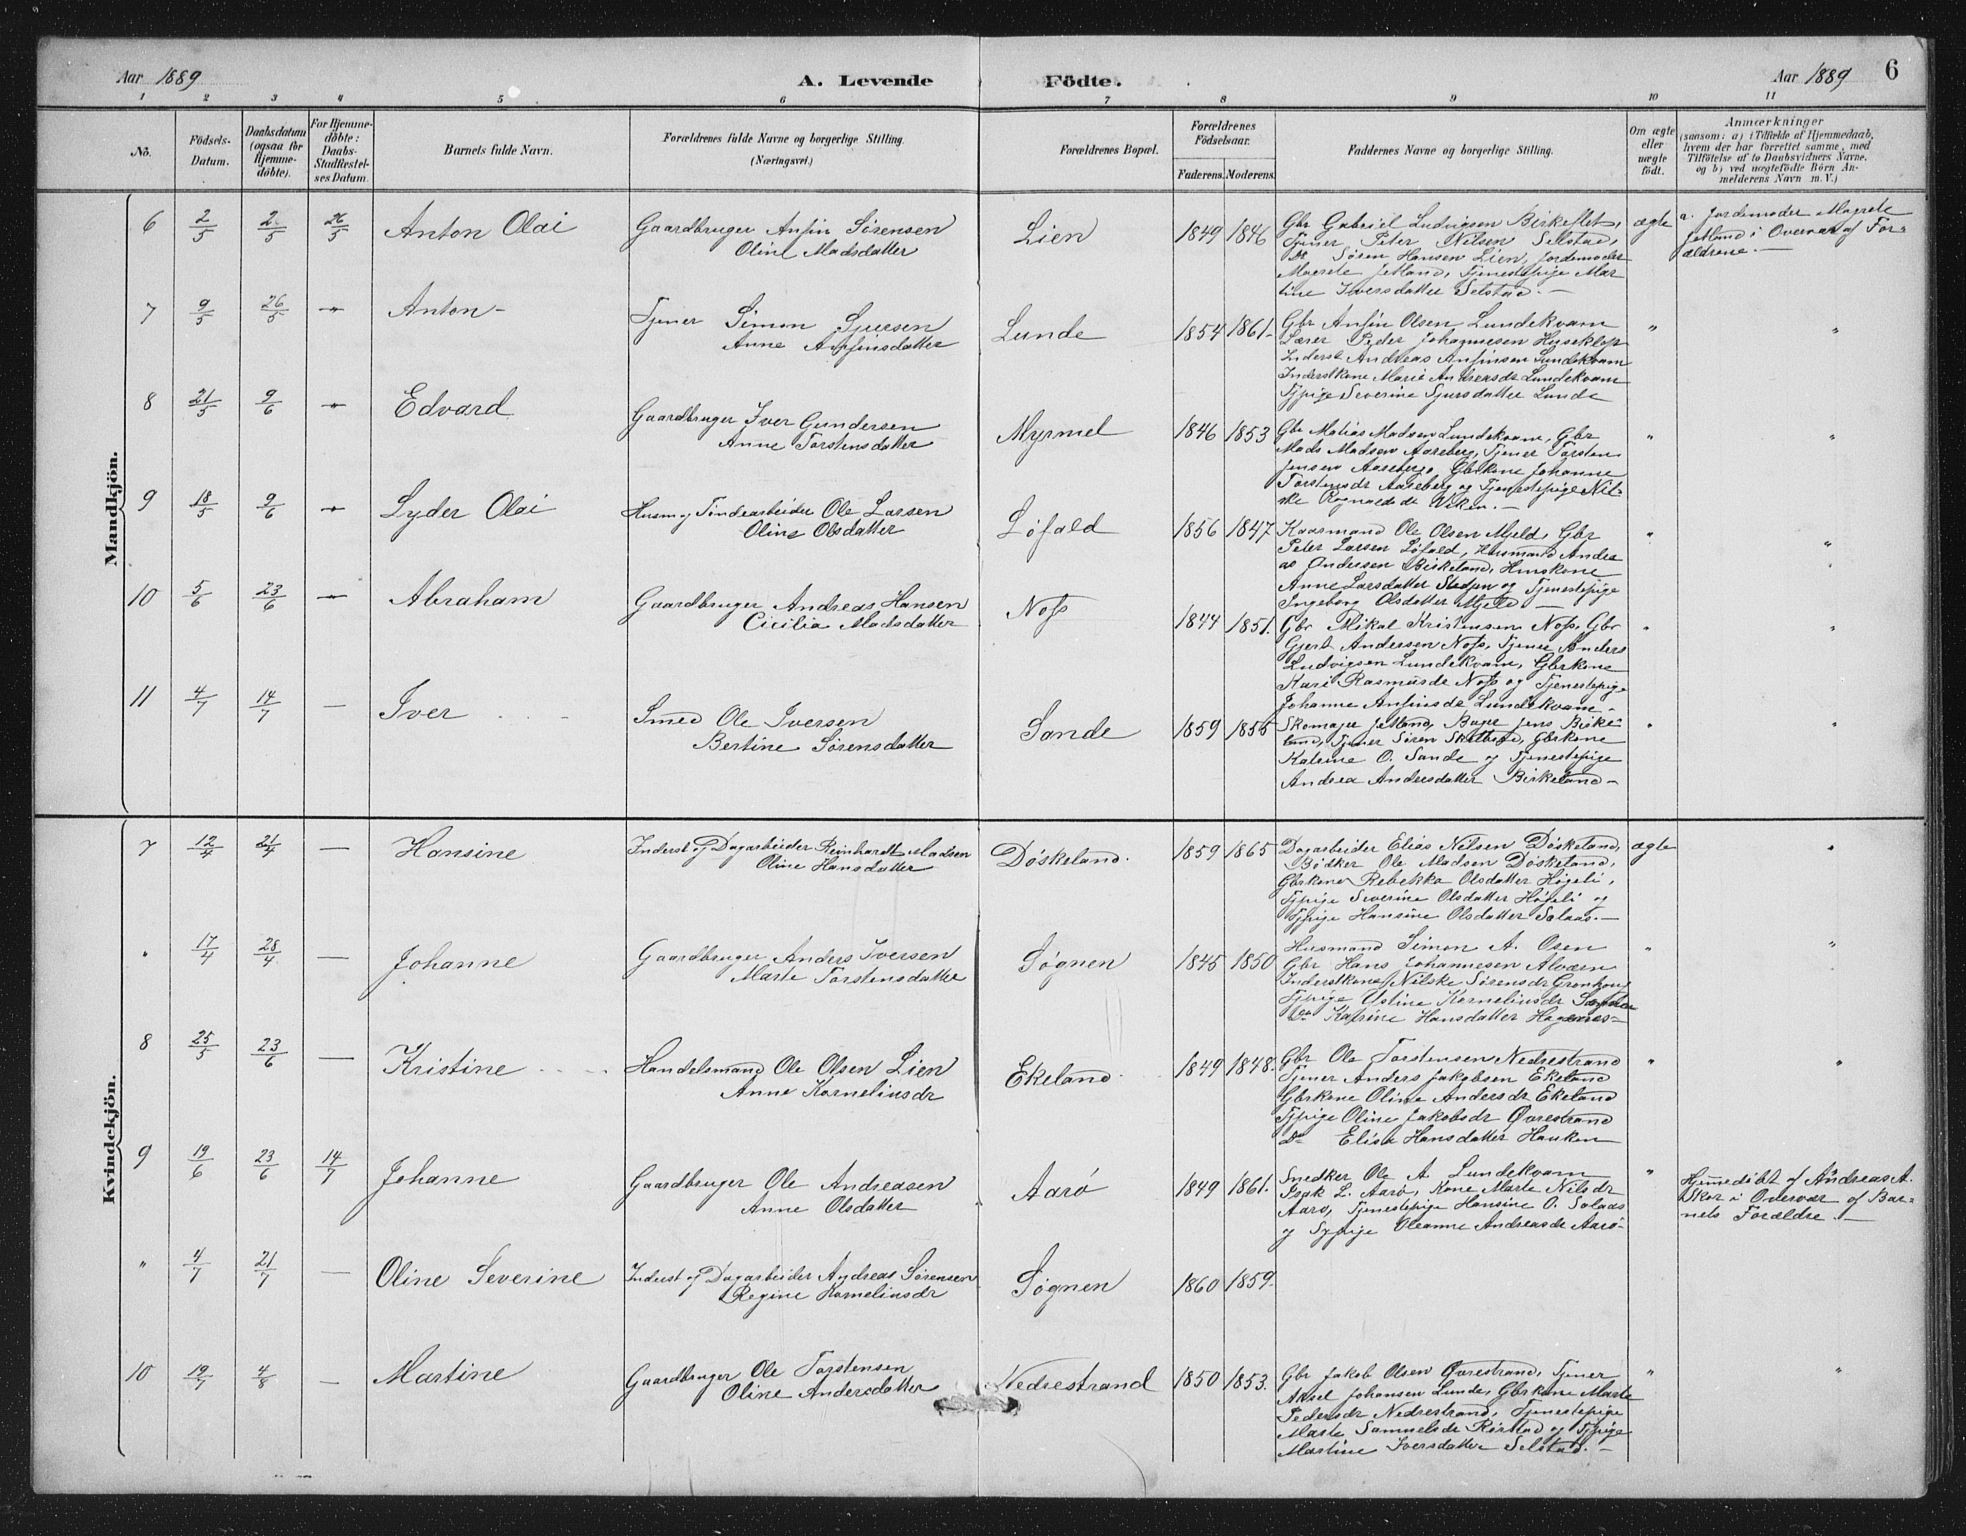 Aar 1889
A. Levende Födte.
Aar 1889 6
1 2 3 4 5 6 7 8 9 10 11
No.
Födsels-
Datum.
Daabsdatum
(ogsaa for
Hjemme-
döbte).
For Hjemme-
döbte:
Daabs-
Stadfestel-
ses Datum.
Barnets fulde Navn.
Forældrenes fulde Navne og borgerlige Stilling.
(Næringsvei.)
Forældrenes Bopæl.
Forældrenes
Födselsaar.
Faderens. Moderens.
Faddernes Navne og borgerlige Stilling.
Om ægte
eller
uægte
födt.
Anmærkninger
(saasom: a) i Tilfælde af Hjemmedaab,
hvem der har forrettet samme, med
Tilföielse af to Daabsvidners Navne,
og b) ved uægtefödte Börn An-
melderens Navn m. V.)
Mandkjön.
6 2/5 2/5 26/5 Anton Olai
Gaardbruger Anfin Sørensen
Oline Madsdatter
Lien 1849 1846
Gbr Gabriel Ludvigsen Birkeflet,
Tjener Peter Nilsen Selstad,
Do Søren Hansen Lien, Jordemoder
Magrete Jetland, Tjenestepige Mar
tine Iversdatter Selstad. —
ægte
a. Jordemoder Magrete
Jetland i Overvær af For-
ældrene. —
7 9/5 26/5 " Anton —
Tjener Simon Sjursen
Anne Anfinsdatter
Lunde 1854 1861.
Gbr Anfin Olsen Lundekvam
Lærer Peder Johannesen Huseklep
Inderst Andreas Anfinsen Lundekvam
Inderstkone Marie Andreasdr Lundekvam
Tjpige Severine Sjursdatter Lunde
" "
8 21/5 9/6 " Edvard
Gaardbruger Iver Gundersen
Anne Torstensdatter
Myrmel 1846 1853
Gbr Matias Madsen Lundekvam, Gbr
Mads Madsen Aaseberg, Tjener Torsten
Jensen Aaseberg, Gbrkone Johanne
Torstensdr Aaseberg og Tjenestepige Nil-
ske Ragnaldsdr Viken. —
" "
9 18/5 9/6 " Lyder Olai
Husm og Tøndearbeider Ole Larsen
Oline Olsdatter
Løfald 1856 1847
Kaarmand Ole Olsen Mjeld, Gbr
Peter Larsen Løfald, Husmand Andre
as Andersen Birkeland, Huuskone
Anne Larsdatter og Tjenestepige
Ingeborg Olsdatter Mjeld —
" "
10 5/6 23/6 " Abraham
Gaardbruger Andreas Hansen
Cicilia Madsdatter
Noss 1844 1851.
Gbr Mikal Kristensen Noss, Gbr
Gjert Andersen Noss, Tjener Anders
Ludvigsen Lundekvam, Gbrkone
Kari Rasmusdr Noss og Tjenestepige
Johanne Anfinsdr Lundekvam —
" "
11 4/7 14/7 — Iver
Smed Ole Iversen
Bertine Sørensdatter
Sande 1859 1855
Skomager Jetland, Jens Birke-
land, Tjener Søren Gbrkone
Katrine O. Sande og Tjenestepige
Andrea Andersdatter Birkeland —
" "
Kvindekjön.
7 12/4 21/4 — Hansine
Inderst og Dagarbeider Reinhardt Madsen
Oline Hansdatter
Døskeland. 1859 1865
Dagarbeider Elias Nilsen Døskeland,
Bødker Ole Madsen Døskeland,
Gbrkone Rebekka Olsdatter Høgeli,
Tjpige Severine Olsdatter Høgeli og
Tjpige Hansine Olsdatter Solaas. —
ægte "
" 17/4 28/4 — Johanne
Gaardbruger Anders Iversen
Marte Torstensdatter
Søgnen 1845 1850
Husmand Simon A. Osen
Gbr Hans Johannesen Alværn
Inderstkone Nilske Sørensdr
Tjpige Kornelinsdr
Do Katrine Hansdatter —
" "
8 25/5 23/6 — Kristine
Handelsmand Ole Olsen Lien
Anne Kornelinsdr
Ekeland. 1849 1848.
Gbr Ole Torstensen Nedrestrand
Tjener Anders Jakobsen Ekeland
Gbrkone Oline Andersdr Ekeland
Tjpige Oline Jakobsdr Øvrestrand
Do Elisa Hansdatter Hauken
" "
9 19/6 23/6 14/7 Johanne
Gaardbruger Ole Andreasen
Anne Olsdatter
Aarø 1849 1861.
Snedker Ole A Lundekvam
Isak L. Aarø, Kone Marte Nilsdr
Aarø, Tjenestepige Hansine O. Solaas
og Tjpige Oleanne Andreasdr Aarø —
"
Hjemedøbt af Andreas A.
Skor i Overvær af Bar-
nets Forældre. —
" 4/7 21/7 — Oline Severine
Inderst og Dagarbeider Andreas Sørensen
Regine Kornelinsdr
Søgnen 1860 1859.
10 19/7 4/8 — Martine
Gaardbruger Ole Torstensen
Oline Andersdatter
Nedrestrand 1850 1853.
Gbr Jakob Olsen Øvrestrand, Tjener
Aksel Johansen Lunde, Gbrkone Marte
Pedersdr Nedrestrand, Tjenestepige
Marte Samuelsdr og Tjpige
Martine Iversdatter Selstad. —
" "